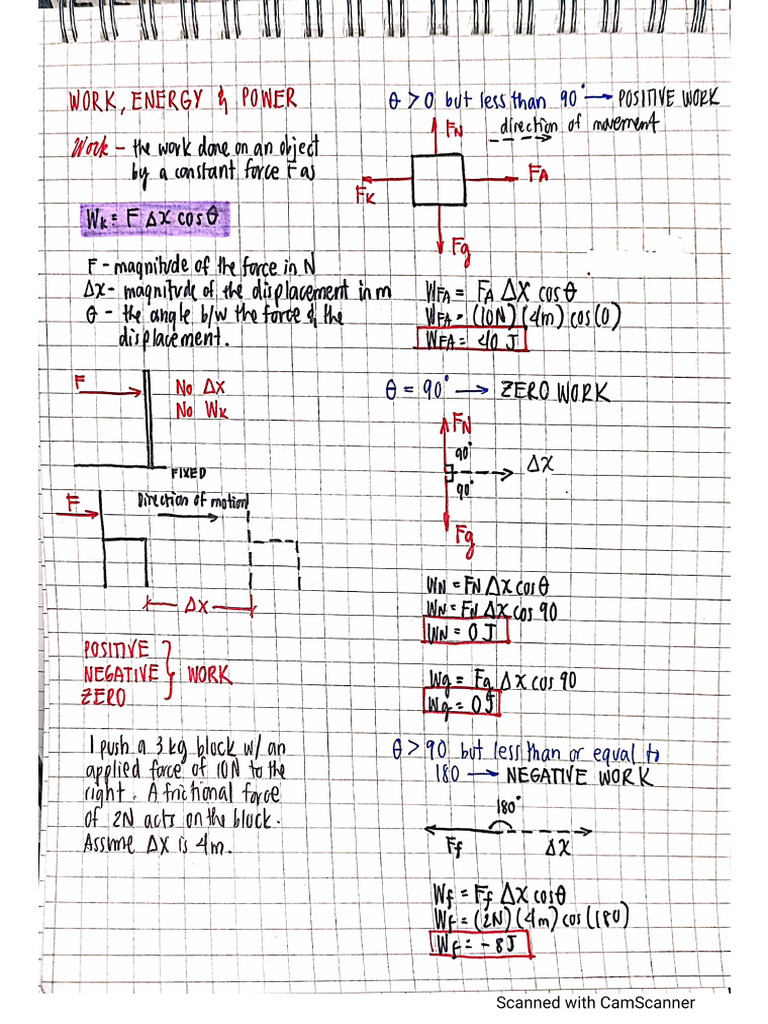 WORK, ENERGY & POWER
Work - the work done on an object
by a constant force F as
Wk = F Δx cosθ
F - magnitude of the force in N
Δx - magnitude of the displacement in m
θ - the angle b/w the force & the
displacement.
F
No Δx
No Wk
FIXED
F
Direction of motion
Δx
POSITIVE
NEGATIVE } WORK
ZERO
I push a 3 kg block w/ an
applied force of 10N to the
right. A frictional force
of 2N acts on the block.
Assume Δx is 4m.
θ > 0 but less than 90° → POSITIVE WORK
direction of movement
FN
FA
FK
Fg
WFA = FA Δx cosθ
WFA = (10N)(4m)cos(0)
WFA = 40 J
θ = 90° → ZERO WORK
FN
90°
Δx
90°
Fg
WN = FN Δx cosθ
WN = FN Δx cos 90
WN = 0 J
Wg = Fg Δx cos 90
Wg = 0 J
θ > 90 but less than or equal to
180 → NEGATIVE WORK
180°
Ff
Δx
Wf = Ff Δx cosθ
Wf = (2N)(4m)cos(180)
Wf = -8J
Scanned with CamScanner